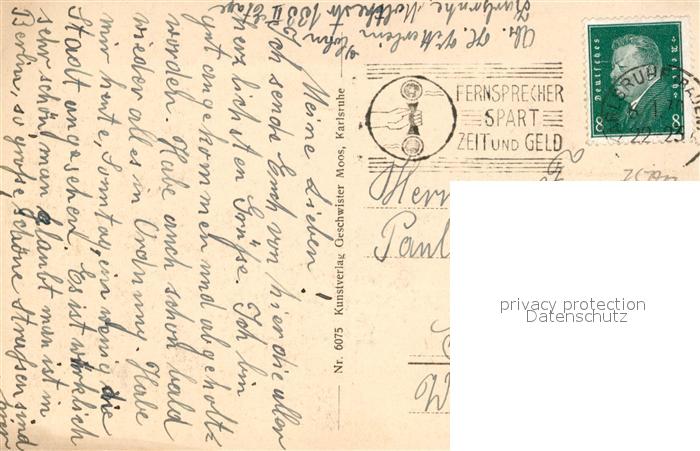 Meine Lieben!
Ich sende Euch von hier die aller
herzlichsten Grüße. Ich bin
gut angekommen und abgeholt
worden. Habe auch schon bald
wieder alles in Ordnung. Habe
mir heute, Sonntag, ein wenig die
Stadt angesehen. Es ist wirklich
sehr schön, man glaubt man ist in
Berlin, so große schöne Straßen sind
hier
Karlsruhe, Moltkestr 133 II Etage
Nr. 6075 Kunstverlag Geschwister Moos, Karlsruhe
FERNSPRECHER
SPART
ZEIT UND GELD
Deutsches Reich
8 8
KARLSRUHE
22-23
Herrn
Paul
W
privacy protection
Datenschutz